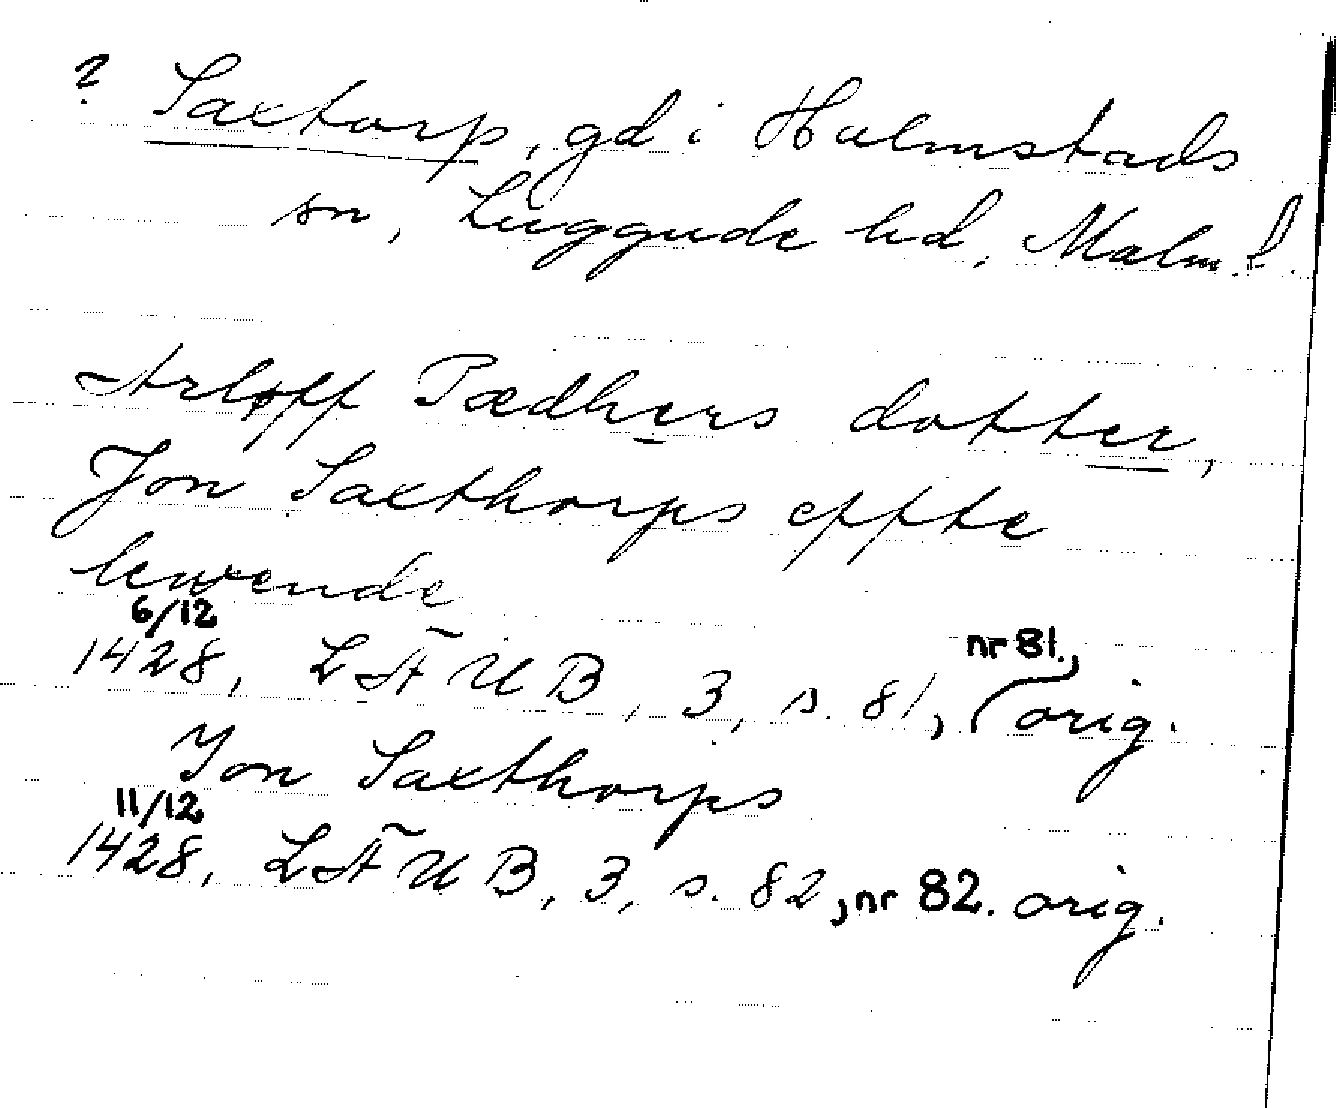 ? Saxtorp, gd i Halmstads
sn, Luggude hd, Malm. l.
Arløff Pædhers dotter,
Jon Saxthorps effte
lewende
6/12
1428, LÄUB, 3, s. 81, nr 81., orig.
Jon Saxthorps
11/12
1428, LÄUB, 3, s. 82, nr 82. orig.